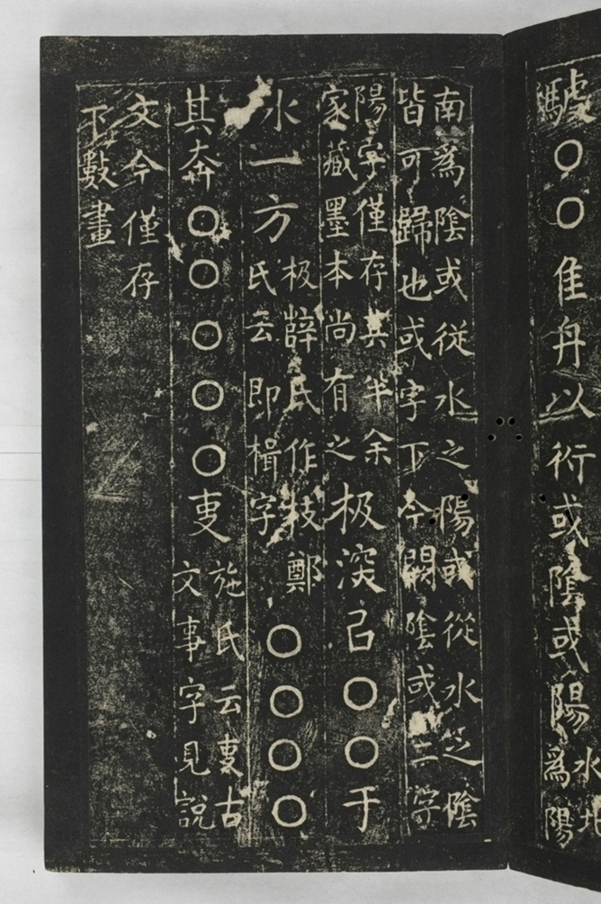 驉○○隹舟以衍或陰或陽水北爲陽
南爲陰或從水之陽或從水之陰皆可歸也或字下今闕陰或二字
陽字僅存其半余家藏墨本尚有之极深㠯○○于
水一方极薛氏作枝鄭氏云即楫字○○○○
其奔○○○○○叓施氏云叓古文事字見說
文今僅存下數畫